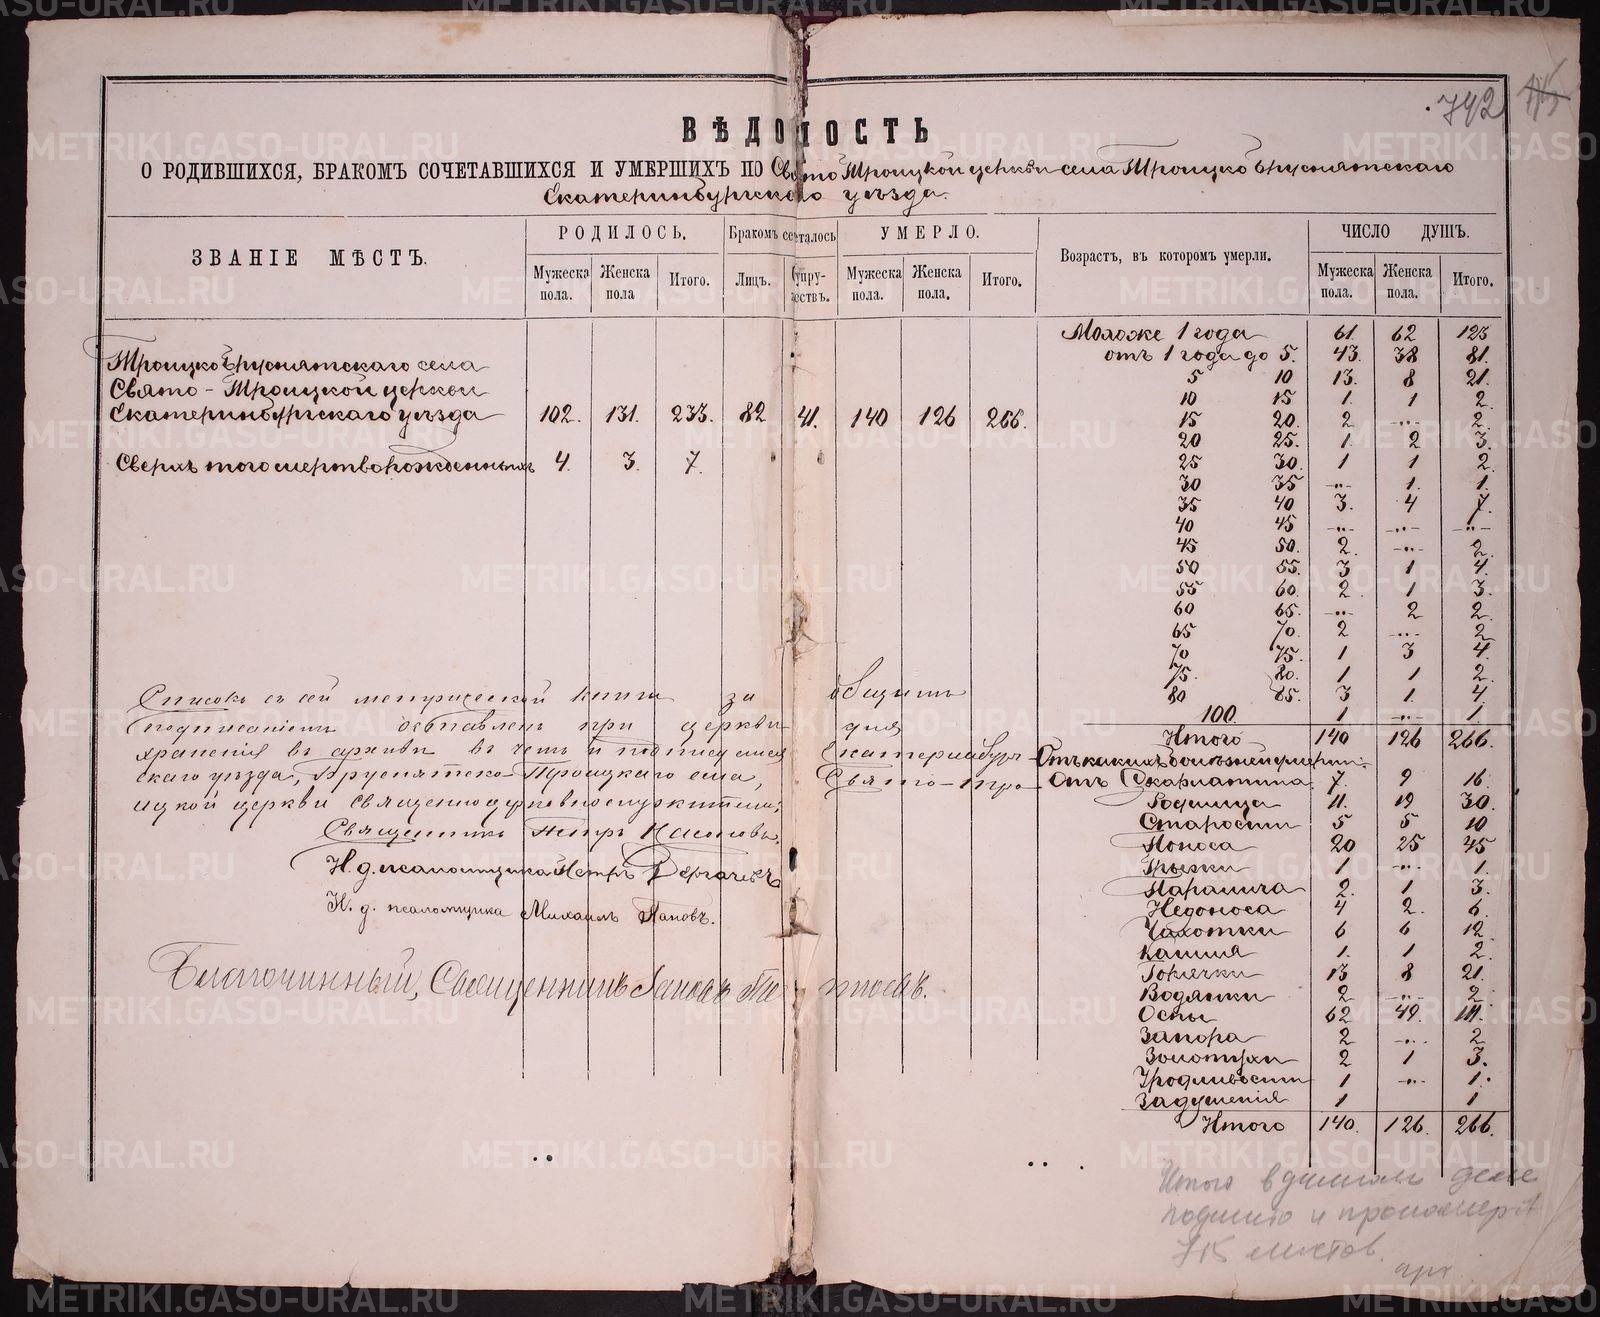 742
ВѢДОМОСТЬ
О РОДИВШИХСЯ, БРАКОМЪ СОЧЕТАВШИХСЯ И УМЕРШИХЪ ПО Свято Троицкой церкви села Троицко Бруснятскаго
Екатеринбургскаго уѣзда.
ЗВАНІЕ МѢСТЪ. РОДИЛОСЬ. Бракомъ сочеталось УМЕРЛО. Возрастъ, въ которомъ умерли. ЧИСЛО ДУШЪ.
Мужеска пола. Женска пола Итого. Лицъ. Супружествъ. Мужеска пола. Женска пола. Итого. Мужеска пола. Женска пола. Итого.
Троицко Бруснятскаго села
Свято - Троицкой церкви
Екатеринбургскаго уѣзда 102. 131. 233. 82 41. 140 126 266.
Сверхъ того мертворожденныхъ 4. 3. 7.
Моложе 1 года 61. 62 123
отъ 1 года до 5. 43. 38 81.
5 10 13. 8 21.
10 15 1. 1 2.
15 20. 2 -..- 2.
20 25. 1 2 3.
25 30. 1 1 2.
30 35 -..- 1. 1.
35 40 3. 4 7.
40 45 -..- -..- -..-
45 50. 2. -..- 2.
50 55. 3 1 4.
55 60. 2 1 3.
60 65. -..- 2 2.
65 70. 2 -..- 2
70 75. 1 3 4.
75. 80. 1 1 2.
80 85. 3 1 4
100. 1 -..- 1.
Итого 140 126 266.
Списокъ съ сей метрической книги за общимъ
подписаніемъ оставленъ при церкви для
храненія въ архивѣ въ чемъ и подписуемся Екатеринбург-
скаго уѣзда, Бруснятско-Троицкаго села, Свято-Тро-
ицкой церкви священноцерковнослужители:
Священникъ Петръ
И. д. псаломщика Петръ Дергачевъ
И. д. псаломщика Михаилъ Поповъ.
Благочинный, Священникъ
Отъ какихъ болѣзней
Отъ Скарлатина 7. 9 16.
Родимца 11. 19 30.
Старости 5 5 10
Поноса 20 25 45
Грыжи 1 -..- 1.
Паралича 2. 1 3.
Недоноса 4 2. 6.
Чахотки 6 6 12.
Кашля 1. 1 2.
Горячки 13 8 21.
Водянки 2 -..- 2
Оспы 62 49. 111.
Запора 2 -..- 2
Золотухи 2 1 3.
Уродливости 1 -..- 1.
Задушенія 1 1
Итого 140. 126. 266.
Итого в данном деле
подшито и пронумер.
715 листов.
арх
METRIKI.GASO-URAL.RU